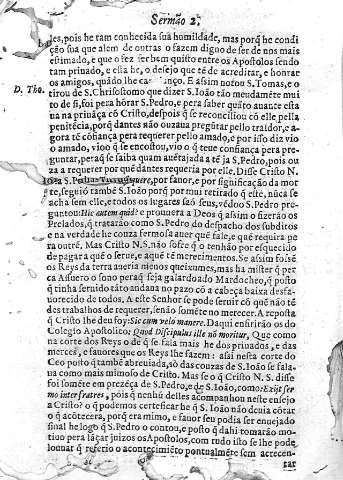 Sermão 2.
les, pois he tam conhecida sua humildade, mas porq̃ he condi
ção sua que alem de outras o fazem digno de ser de nos mais
estimado, e que o fez ser bem quisto entre os Apostolos sendo
tam priuado, e esta he, o desejo que tẽ de acreditar, e honrar
os amigos, quãdo lhe
D. Tho.
S. Tomas, e o
tirou de S. Chrisostomo que dizer S. Ioão tão meudamẽte mui
to de si, foi pera hõrar S. Pedro, e pera saber quãto auante esta
ua na priuãça cõ Cristo, despois q̃ se reconciliou cõ elle pella
penitẽcia, porq̃ dantes não ouzaua pregũtar pello traidor, e a-
gora tẽ cõfiança pera requerer pello amado, e por isso diz vio
o amado, vio o q̃ se encostou, vio o q̃ teue confiança pera pre
guntar, peraq̃ se saiba quam auẽtajada a tẽ ja S. Pedro, pois ou
za a requerer por quẽ dantes requeria por elle. Disse Cristo N.
por fauor, e por significação da mor
te, seguio tambẽ S. Ioão porq̃ por mui retirado q̃ estè, nũca se
acha sem elle, e todos os lugares saõ seus, vẽdoo S. Pedro pre-
guntou: Hic autem quid? e prouuera a Deos q̃ assim o fizerão os
Prelados, q̃ tratarão como S. Pedro do despacho dos subditos
e na verdade he couza fermosa auer quẽ fale, e quẽ requira pe
ra outrẽ. Mas Cristo N. S. não sofre q̃ o tenhão por esquecido
de pagar a quẽ o serue, e a quẽ tẽ merecimentos. Se assim fosse
os Reys da terra aueria menos queixumes, mas ha mister q̃ per
ca Assuero o sono peraq̃ seja galardoado Mardocheo, q̃ posto
q̃ tinha seruido tãto andaua no pazo cõ a cabeça baixa desfa-
uorecido de todos. A este Senhor se pode seruir cõ quẽ não tẽ
des trabalhos de requerer, senão sómẽte no merecer. A reposta
q̃ Cristo lhe deu foy: Sic eum volo manere. Daqui enfirirão os do
Colegio Apostolico: Quod Discipulus ille nõ moritur, Que como
na corte dos Reys o de q̃ se fala mais he dos priuados, e das
mercẽs, e fauores que os Reys lhe fazem: assi nesta corte do
Ceo posto q̃ tambẽ abreuiada, sò das couzas de S. Ioão se fala-
ua como mais mimoso de Cristo. Mas se o q̃ Cristo N. S. disse
foi sómẽte em prezẽça de S. Pedro, e de S. Ioão, como: Exijt ser
mo inter fratres, pois q̃ nenhũ delles acompanhou neste ensejo
a Cristo? a q̃ podemos certeficar he q̃ S. Ioão não deuia cõtar
o q̃ acõtecera, porq̃ era mimo, e fauor seu podia ser enuejado
sinal he logo q̃ S. Pedro o contou, e posto q̃ dahi tomarão mo-
tiuo pera lãçar juizos os Apostolos, com tudo isto se lhe pode
louuar q̃ referio o acontecimẽto pontualmẽte sem acrecen-
tar